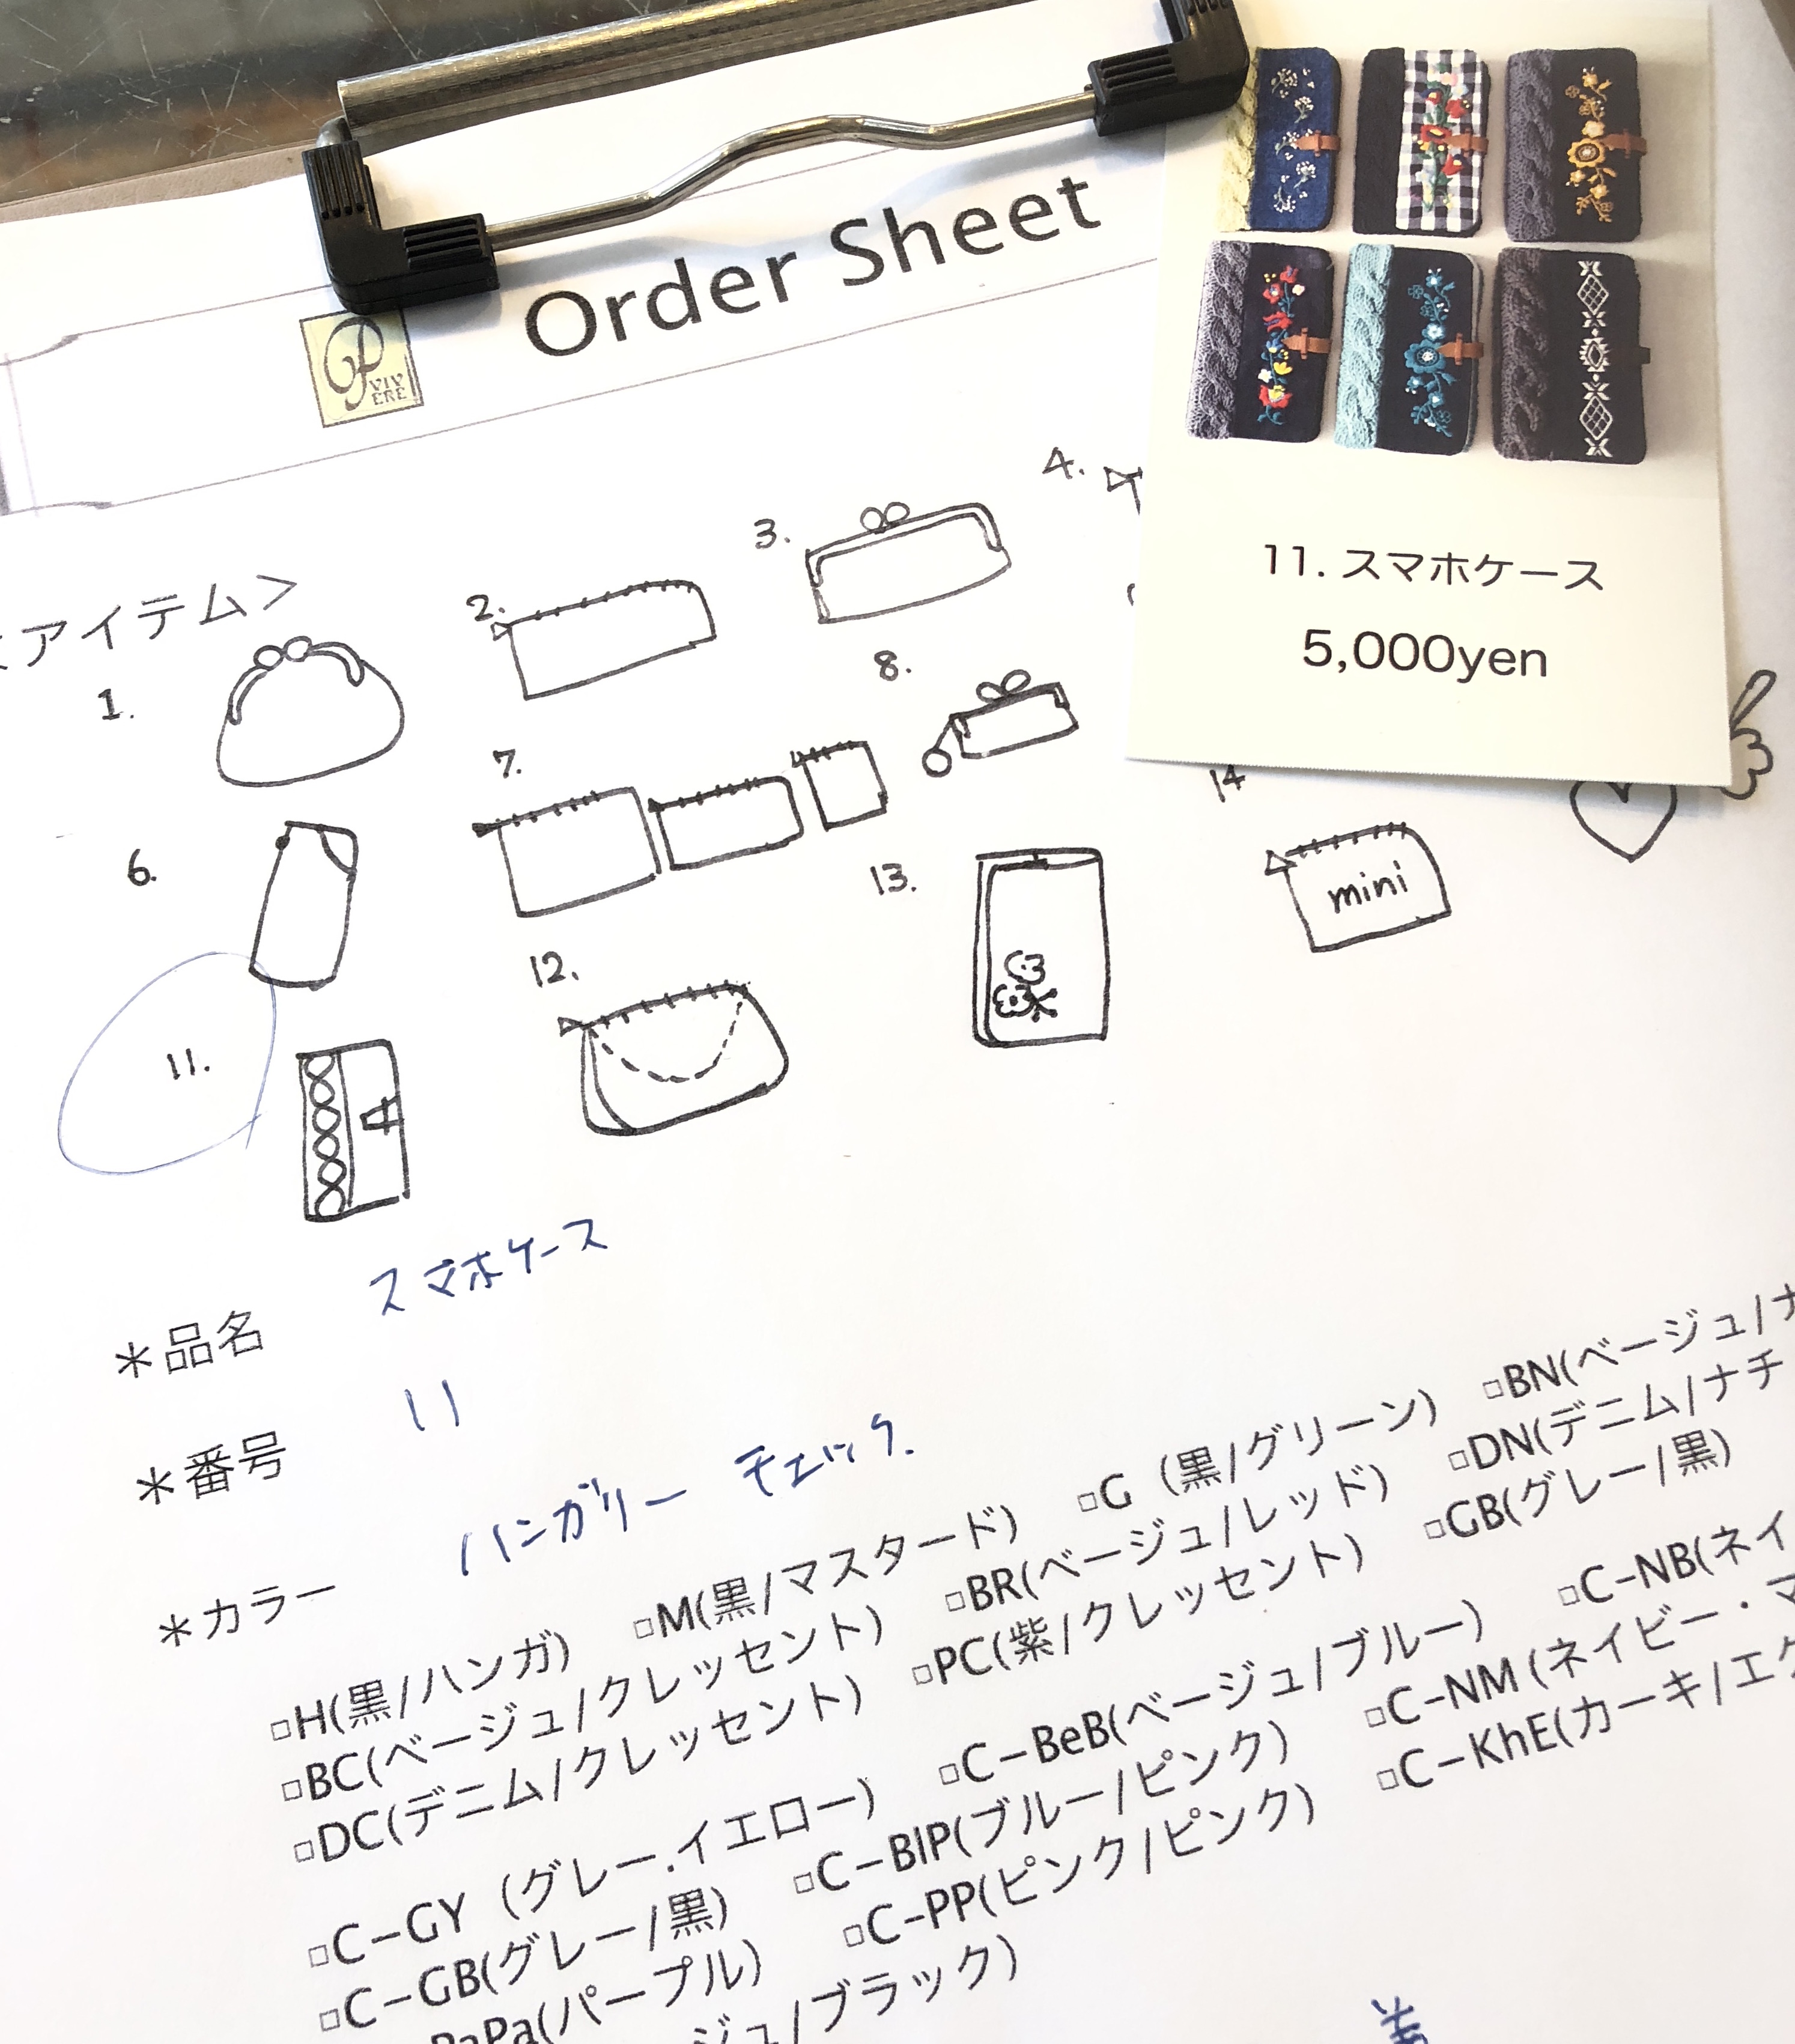 Order Sheet
P VIVERE
アイテム＞
1.
2.
3.
4.
6.
7.
8.
11.
12.
13.
14
mini
11. スマホケース
5,000yen
＊品名 スマホケース
＊番号 11
＊カラー ハンガリー チェック.
□H(黒/ハンガ) □M(黒/マスタード) □G（黒/グリーン) □BN(ベージュ/ナ
□BC(ベージュ/クレッセント) □BR(ベージュ/レッド) □DN(デニム/ナチ
□DC(デニム/クレッセント) □PC(紫/クレッセント) □GB(グレー/黒)
□C−GY（グレー.イエロー) □C−BeB(ベージュ/ブルー) □C−NB(ネイ
□C−GB(グレー/黒) □C−BlP(ブルー/ピンク) □C−NM (ネイビー・マ
PaPa(パープル) □C−PP(ピンク/ピンク) □C−KhE(カーキ/エク
ジュ/ブラック)